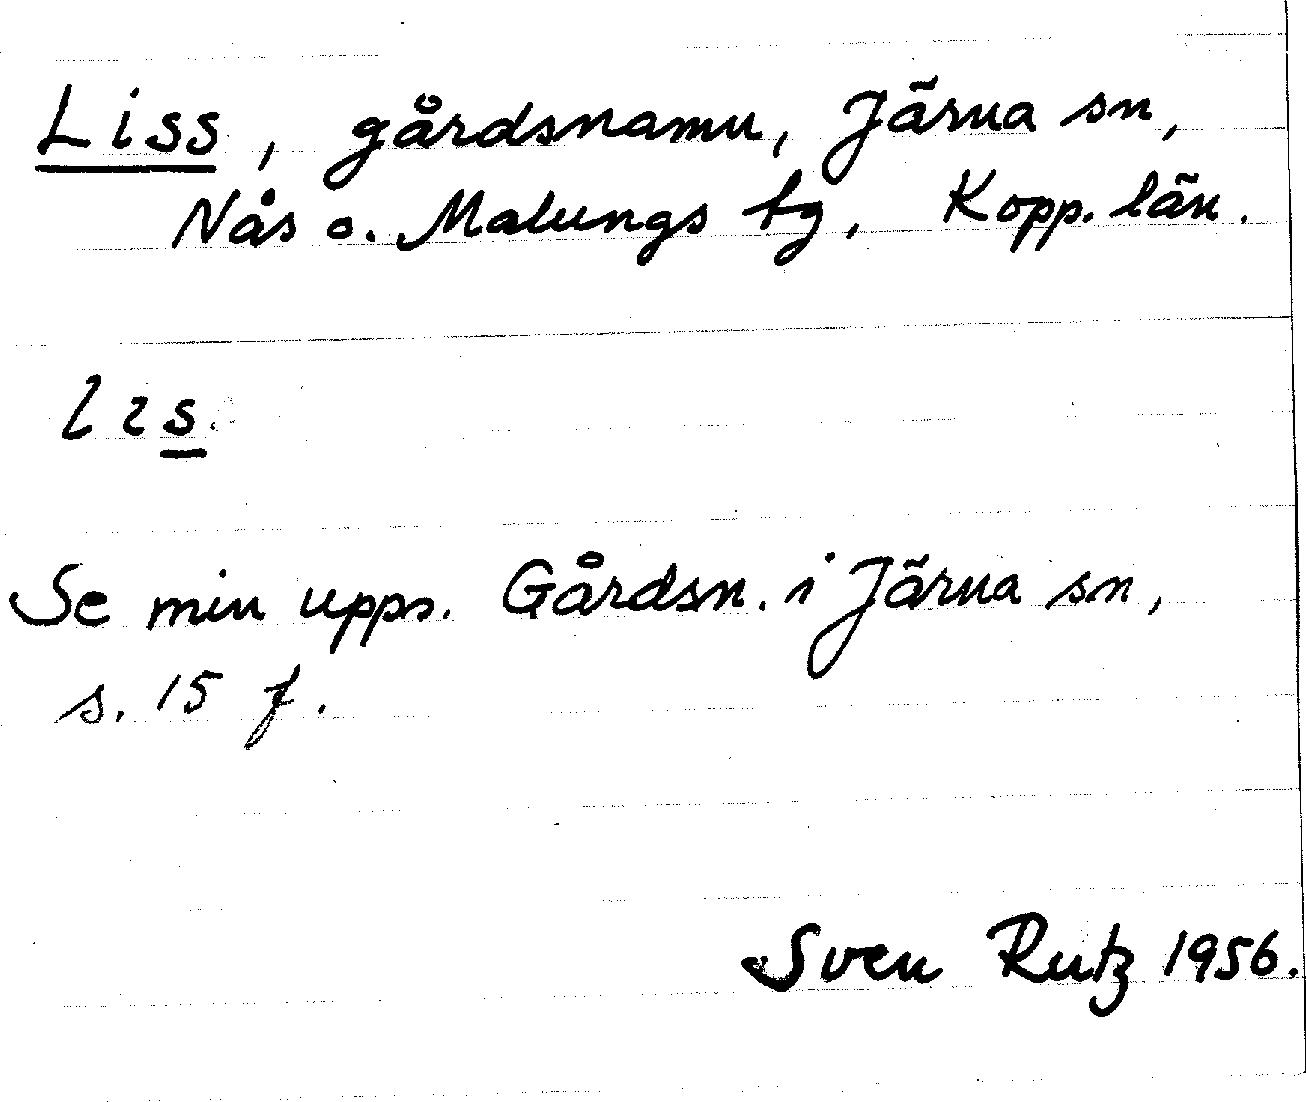 Liss, gårdsnamn, Järna sn,
Nås o. Malungs tg, Kopp. län.
lɩs.
Se min upps. Gårdsn. i Järna sn,
s. 15 f.
Sven Rutz 1956.